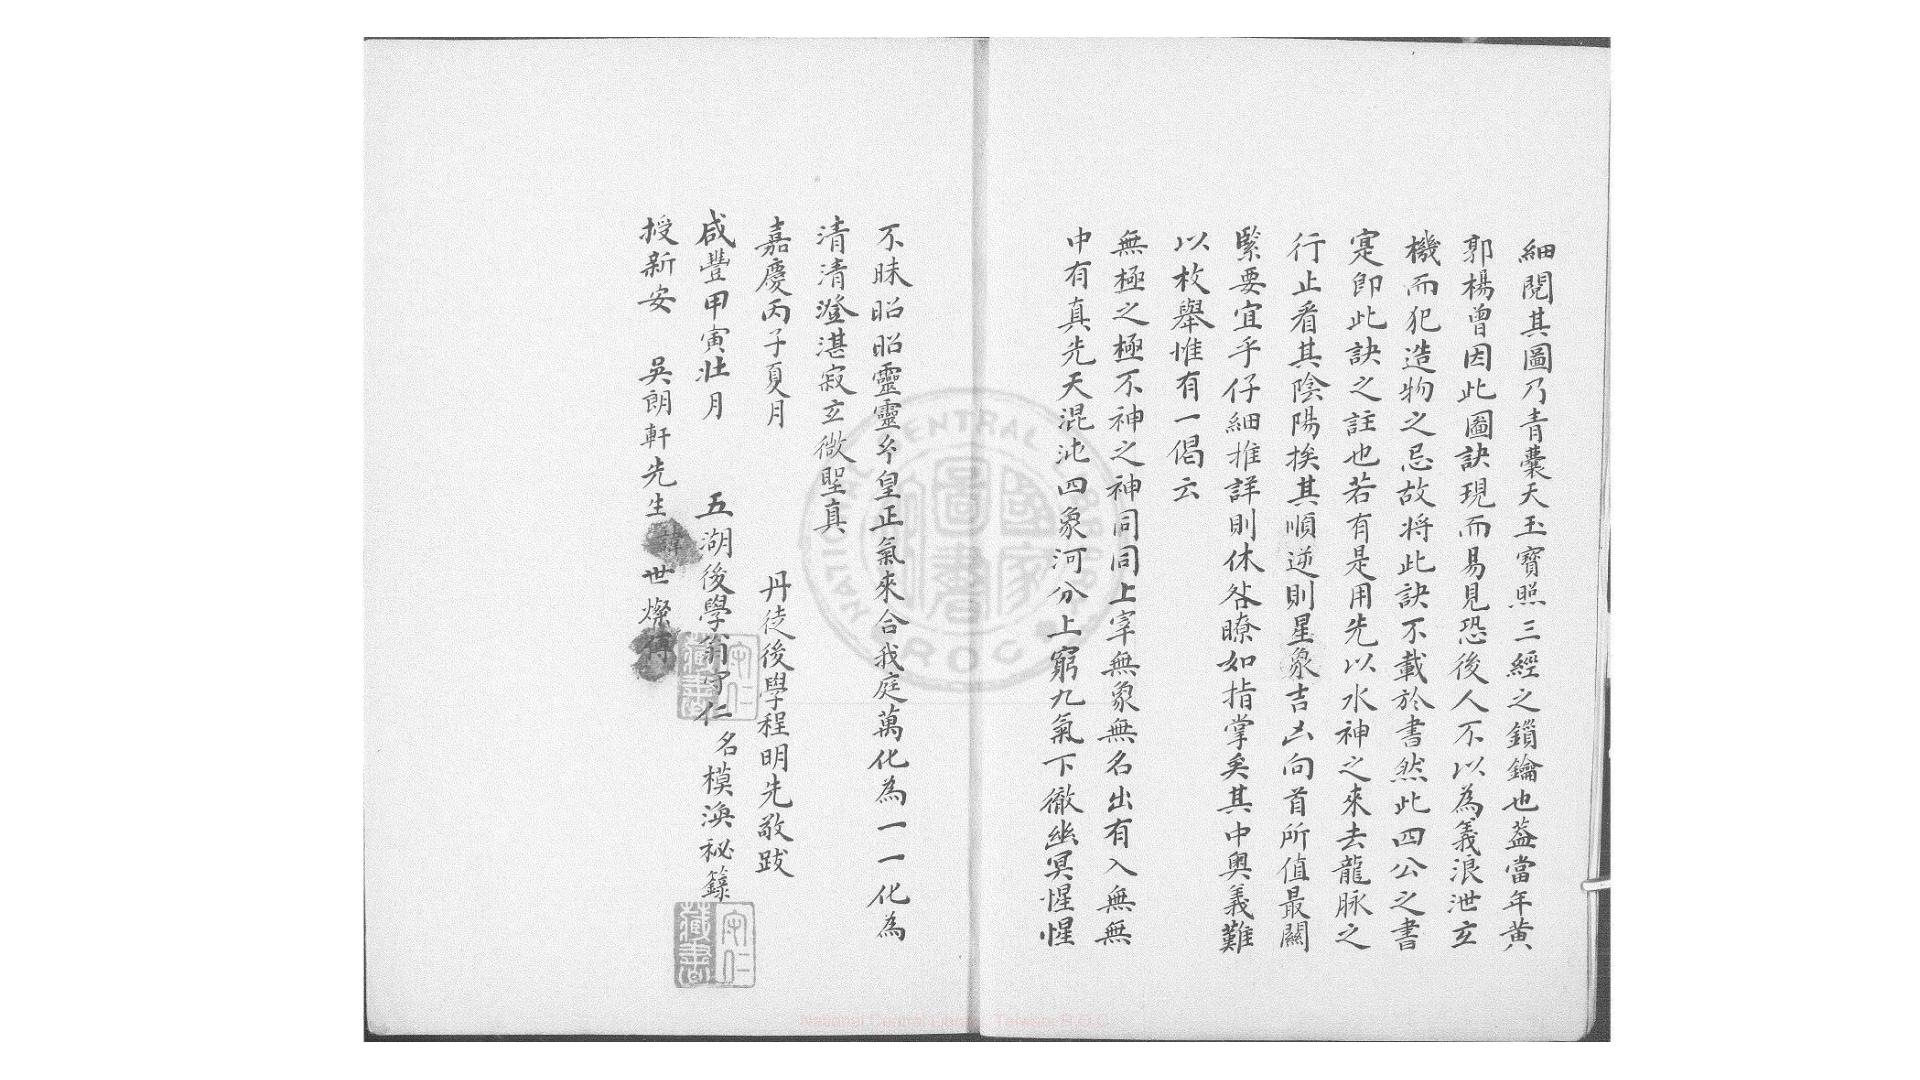 細閱其圖乃青囊天玉寶照三經之鎖鑰也葢當年黃
郭楊曾因此圖訣現而易見恐後人不以為義浪泄玄
機而犯造物之忌故将此訣不載於書然此四公之書
寔即此訣之註也若有是用先以水神之來去龍脉之
行止看其陰陽挨其順逆則星象吉凶向首所值最關
緊要宜乎仔細推詳則休咎瞭如指掌矣其中奧義難
以枚舉惟有一偈云
無極之極不神之神同同上宰無象無名出有入無無
中有真先天混沌四象河分上窮九氣下徹幽冥惺惺
不昧昭昭靈靈兮皇正氣來合我庭萬化為一一化為
清清澄湛寂玄微聖真
嘉慶丙子夏月 丹徒後學程明先敬跋
咸豐甲寅壮月 五湖後學翁守仁名模渙秘籙
授新安 吳朗軒先生諱世燦傳
守仁藏書
守仁藏書
國家圖書館
NATIONAL CENTRAL LIBRARY R.O.C
National Central Library, Taiwan, R.O.C